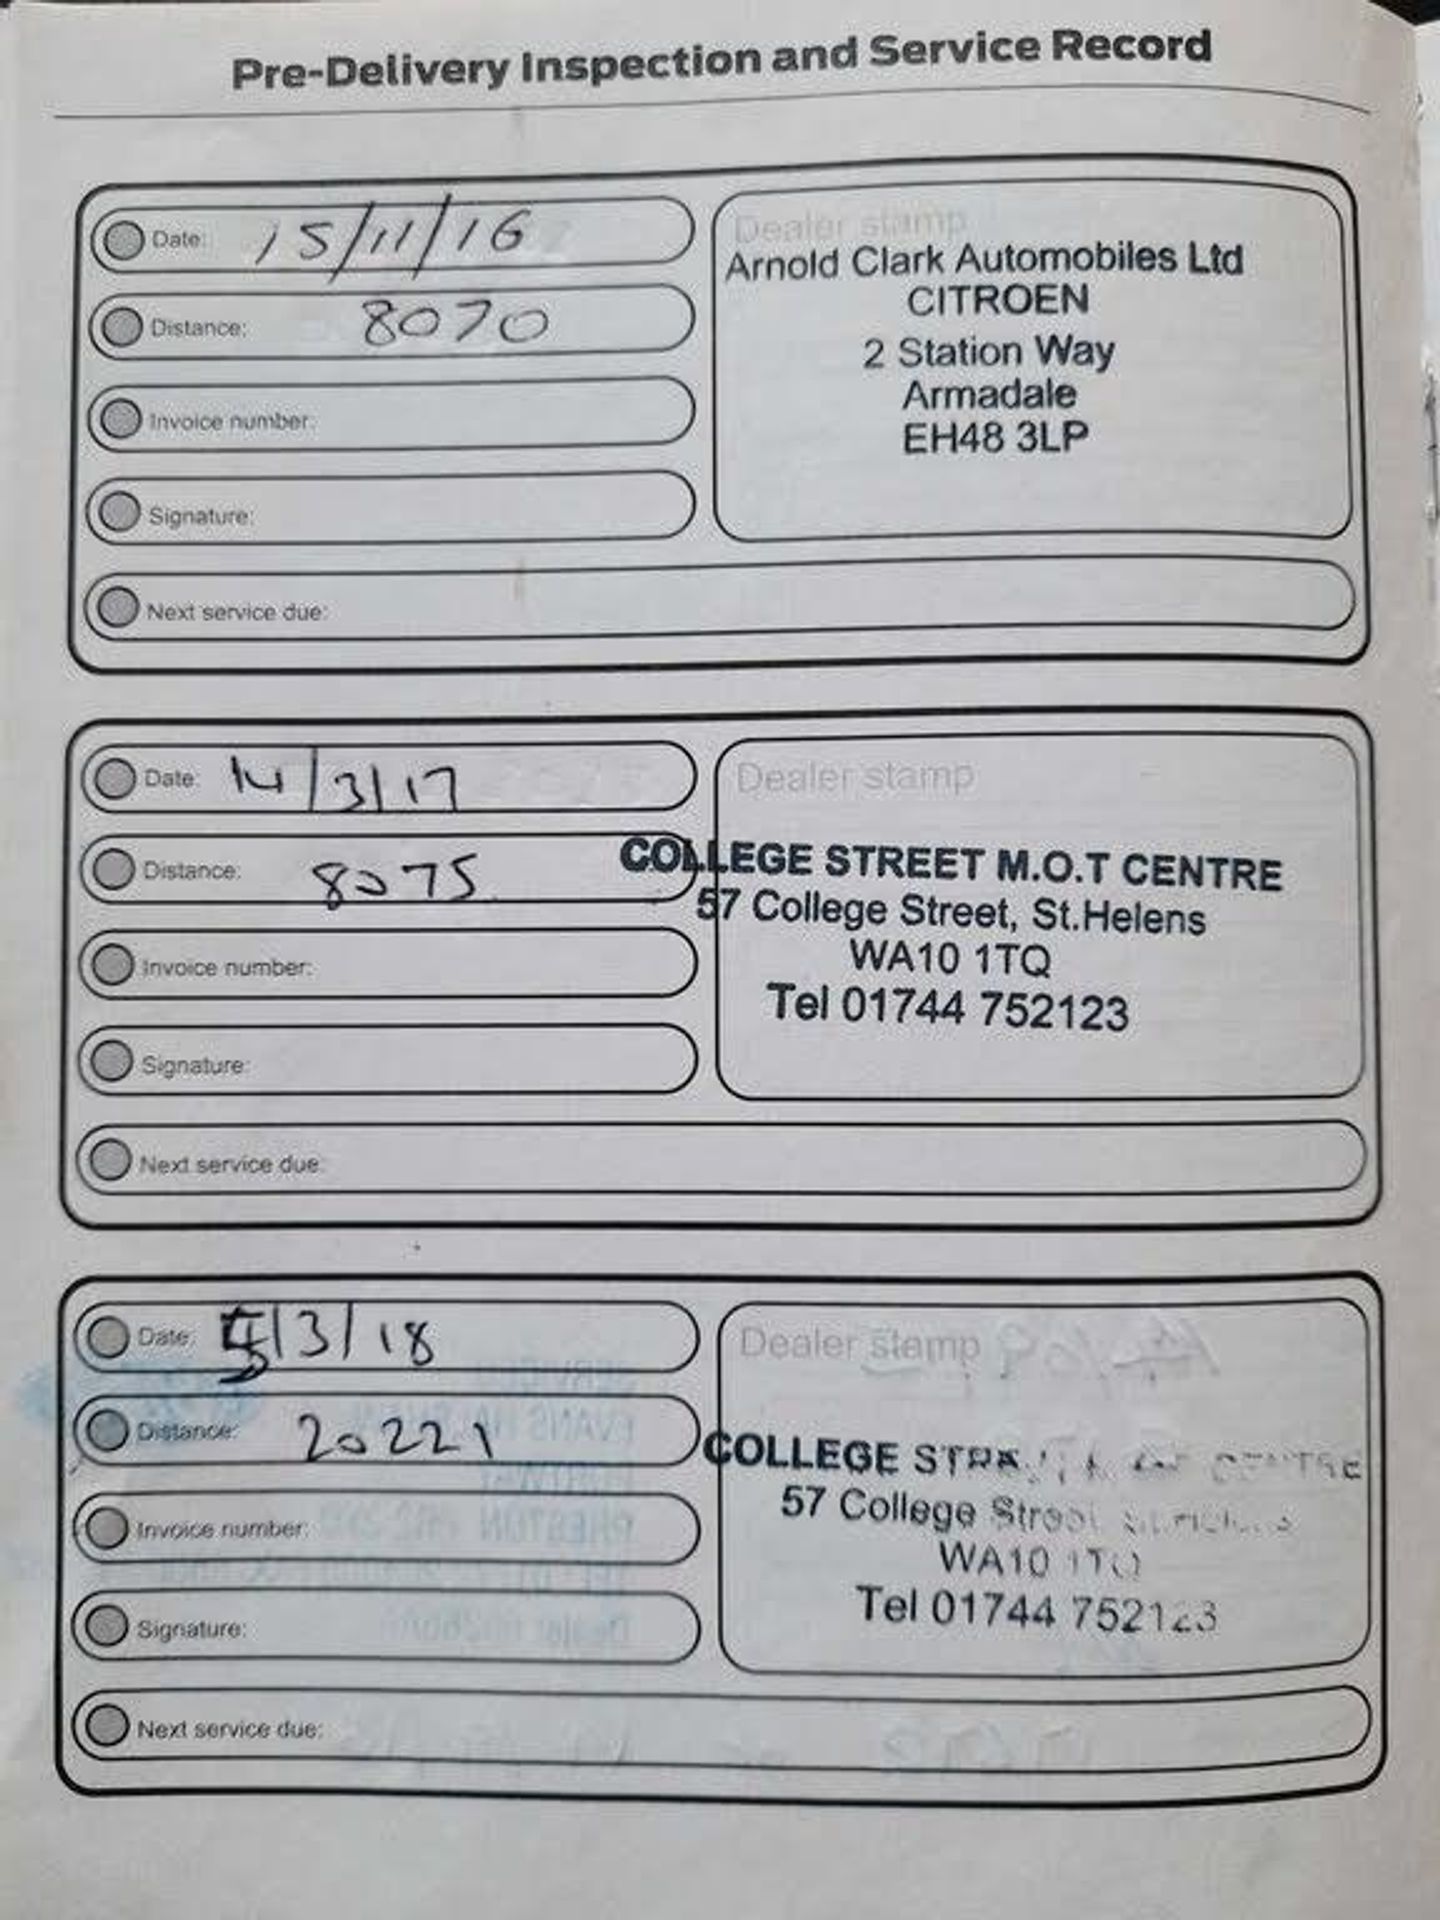 Pre-Delivery Inspection and Service Record
Date: 15/11/16
Distance: 8070
Invoice number:
Signature:
Next service due:
Dealer stamp
Arnold Clark Automobiles Ltd
CITROEN
2 Station Way
Armadale
EH48 3LP
Date: 14/3/17
Distance: 8075
Invoice number:
Signature:
Next service due:
Dealer stamp
COLLEGE STREET M.O.T CENTRE
57 College Street, St.Helens
WA10 1TQ
Tel 01744 752123
Date: 5/3/18
Distance: 20221
Invoice number:
Signature:
Next service due:
Dealer stamp
COLLEGE CENTRE
57 College Street
WA10 1TQ
Tel 01744 752123